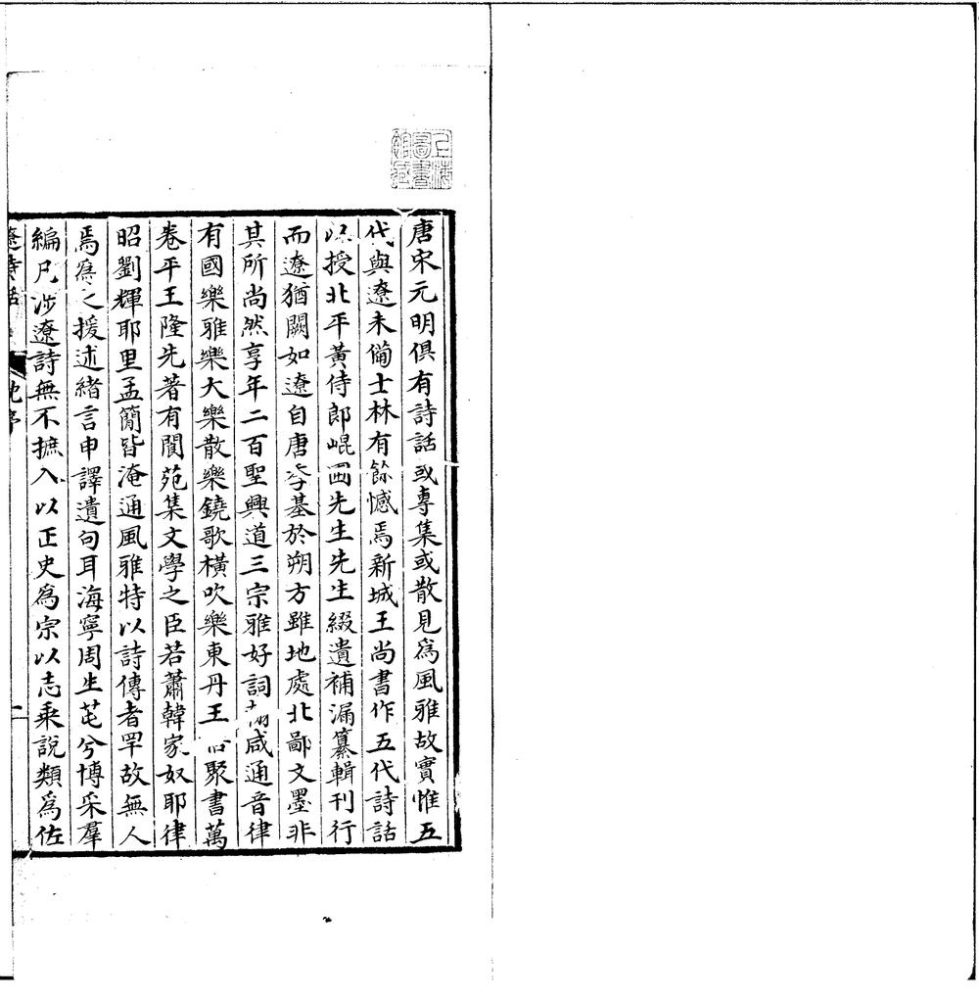 上海圖書館藏
唐宋元明俱有詩話或專集或散見爲風雅故實惟五
代與遼未備士林有餘憾焉新城王尚書作五代詩話
以授北平黃侍郎崐圃先生先生綴遺補漏纂輯刊行
而遼猶闕如遼自唐季基於朔方雖地處北鄙文墨非
其所尚然享年二百聖興道三宗雅好詞翰咸通音律
有國樂雅樂大樂散樂鐃歌橫吹樂東丹王聚書萬
卷平王隆先著有閬苑集文學之臣若蕭韓家奴耶律
昭劉輝耶里孟簡皆淹通風雅特以詩傳者罕故無人
焉爲之援述緒言申譯遺句耳海寧周生芚兮博采羣
編凡涉遼詩無不摭入以正史爲宗以志乘說類爲佐
遼詩話
沈序
一